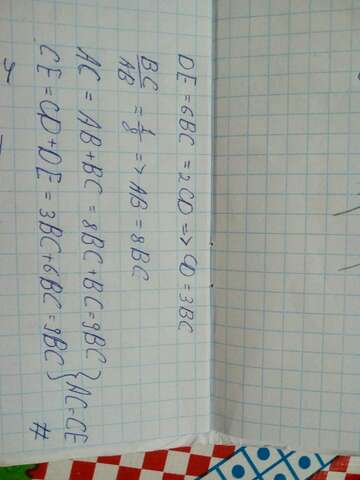 DE = 6BC = 2CD => CD = 3BC
BC/AB = 1/8 => AB = 8BC
AC = AB + BC = 8BC + BC = 9BC } AC = CE
CE = CD + DE = 3BC + 6BC = 9BC }
#